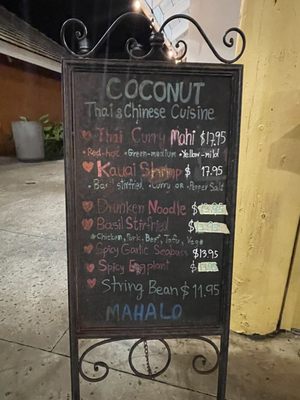 COCONUT
Thai & Chinese Cuisine
Thai Curry Mahi $17.95
Red-hot • Green-medium • Yellow-mild
Kauai Shrimp $ 17.95
Basil stirfried • Curry or Pepper Salt
Drunken Noodle $13.95
Basil Stir-fried $13.95
Chicken, Pork, Beef, Tofu, Vegg
Spicy Garlic Seabass $13.95
Spicy Eggplant $
String Bean $11.95
MAHALO